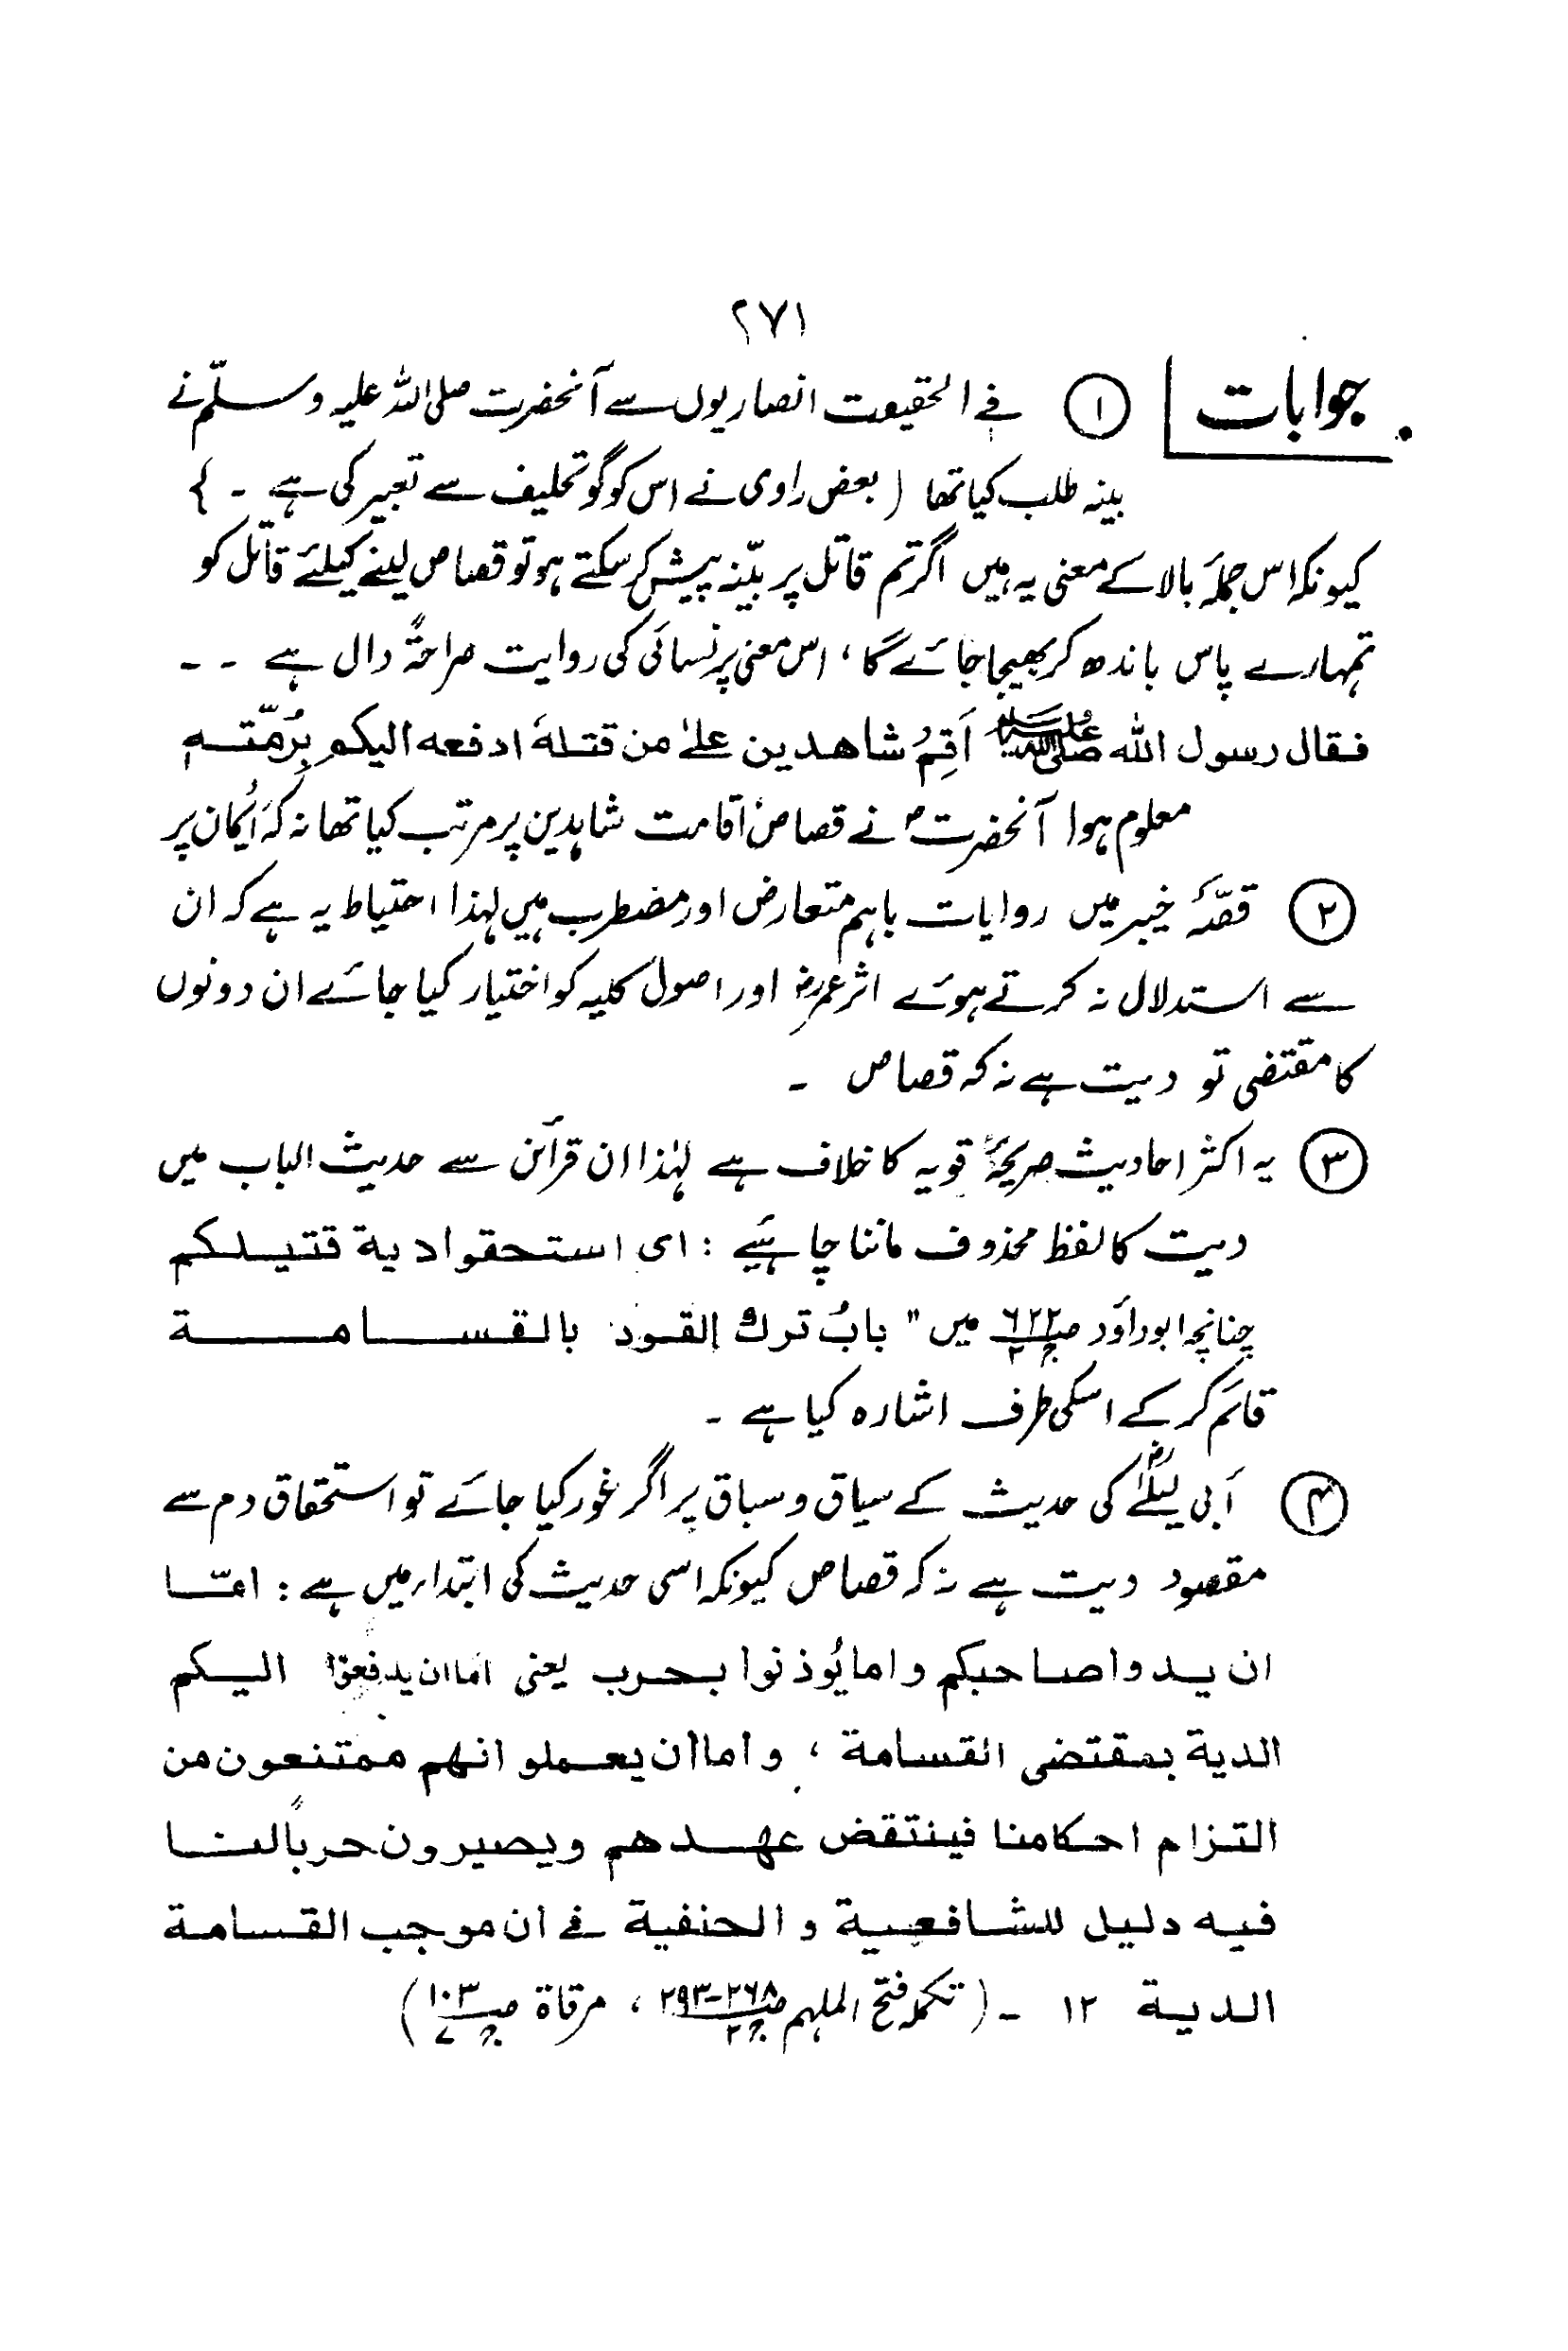 ۲۷۱
جوابات ① فی الحقیقت انصاریوں سے آنحضرت صلی اللہ علیہ وسلّم نے
بینہ طلب کیا تھا ( بعض راوی نے اس کو گو تحلیف سے تعبیر کی ہے ۔ }
کیونکہ اس جملۂ بالا کے معنی یہ ہیں اگر تم قاتل پر بیّنہ پیش کر سکتے ہو تو قصاص لینے کیلئے قاتل کو
تمہارے پاس باندھ کر بھیجا جائے گا ، اس معنی پر نسائی کی روایت صراحۃً دال ہے ۔ ۔
فقال رسول الله ﷺ اَقِمُ شاهدين علىٰ من قتلهٗ ادفعه اليكم بِرُمّته
معلوم ہوا آنحضرتؐ نے قصاص اقامت شاہدین پر مرتب کیا تھا نہ کہ ایمان پر
② قصّۂ خیبر میں روایات باہم متعارض اور مضطرب ہیں لہذا احتیاط یہ ہے کہ ان
سے استدلال نہ کرتے ہوئے اثر عمرؓ اور اصول کلیہ کو اختیار کیا جائے ان دونوں
کا مقتضی تو دیت ہے نہ کہ قصاص ۔
③ یہ اکثر احادیث صریحۂ قویہ کا خلاف ہے لہٰذا ان قرائن سے حدیث الباب میں
دیت کا لفظ محذوف ماننا چاہئیے : ای استحقوا دية قتيلكم
چنانچہ ابوداؤد صـ ۶۲۲ جـ ۲ میں " بابُ ترك القود بالقسامة
قائم کر کے اسکی طرف اشارہ کیا ہے ۔
④ اَبی لیلٰیؓ کی حدیث کے سیاق و سباق پر اگر غور کیا جائے تو استحقاق دم سے
مقصود دیت ہے نہ کہ قصاص کیونکہ اسی حدیث کی ابتداء میں ہے : امّا
ان يدوا صاحبكم واما يُوذنوا بحرب يعنى اما ان يدفعوا اليكم
الدية بمقتضى القسامة ، واما ان يعملو انهم ممتنعون من
التزام احكامنا فينتقض عهدهم ويصيرون حرباً لنا
فيه دليل للشافعية و الحنفية فى ان موجب القسامة
الدية ۱۲ ۔ ( تکملہ فتح الملہم صـ ۲۶۸-۲۹۳ جـ ۲ ، مرقاة صـ ۱۰۳ جـ ۷ )